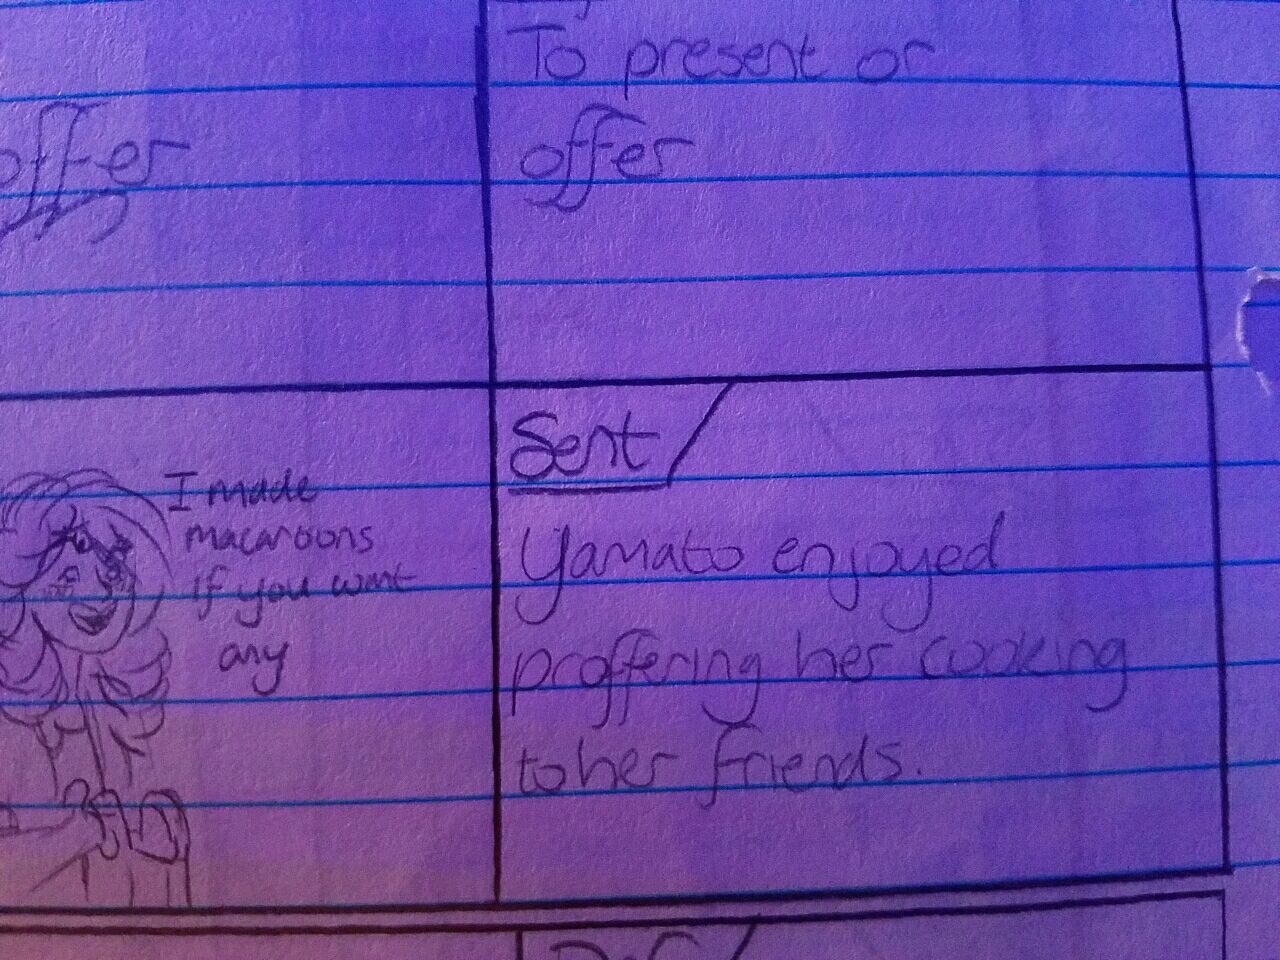 To present or
offer
offer
I made
macaroons
if you want
any
Sent
Yamato enjoyed
proffering her cooking
to her friends.